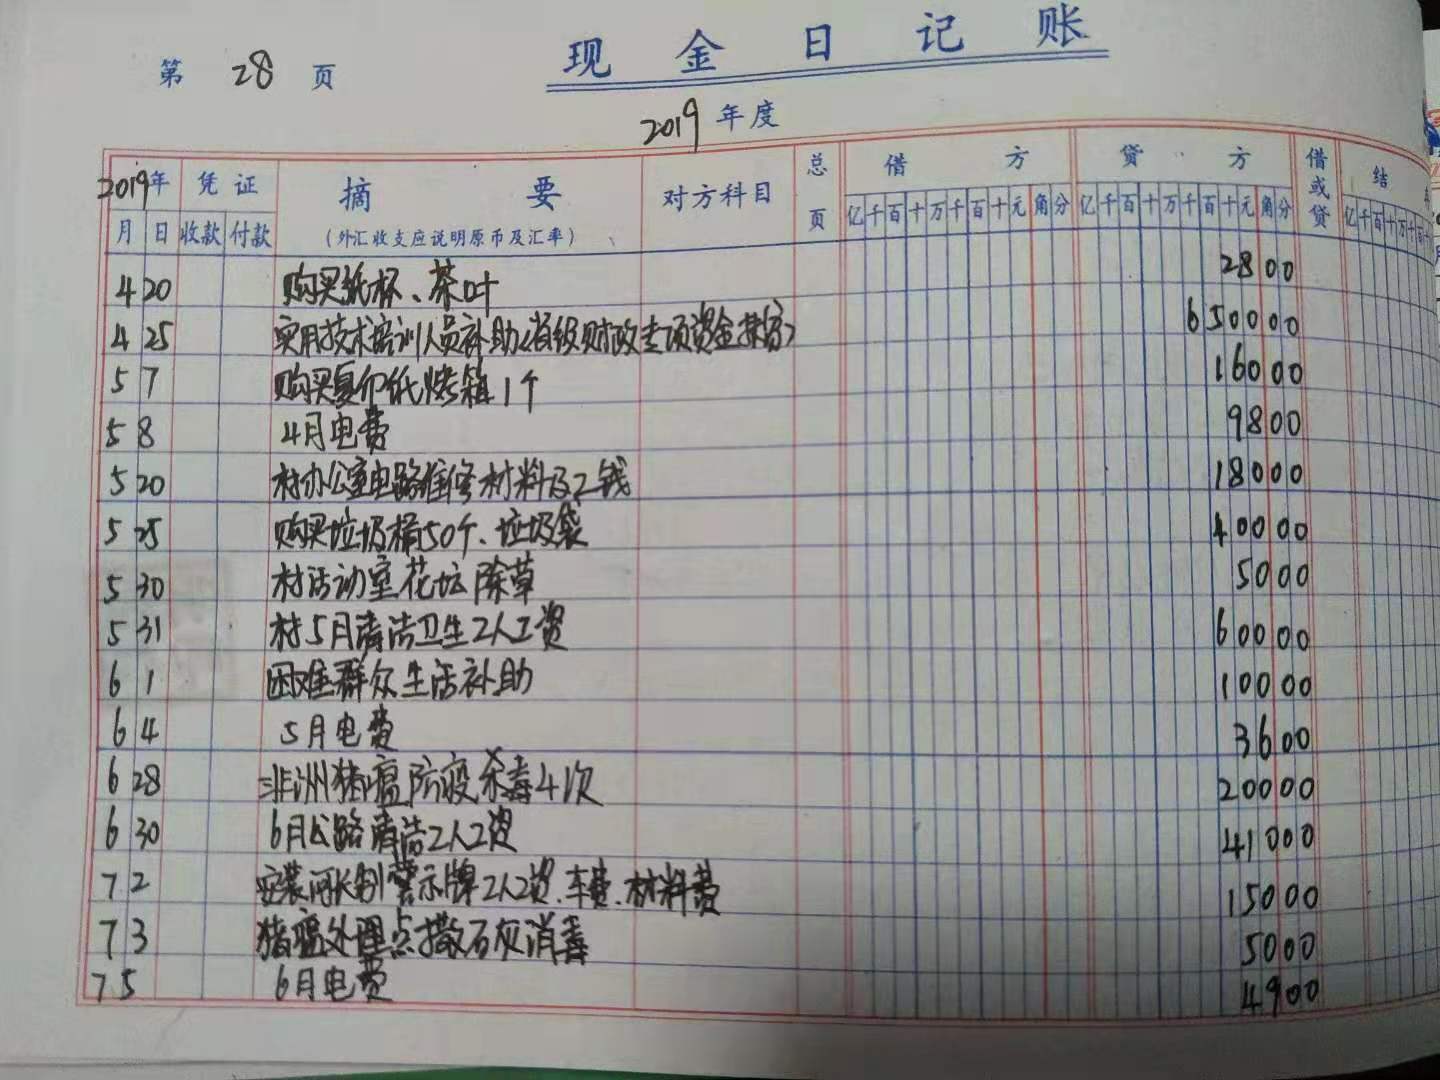 现金日记账
第 28 页
2019 年度
2019年 凭证 摘要 对方科目 总页 借方 贷方 借或贷 结
月 日 收款 付款 (外汇收支应说明原币及汇率) 亿千百十万千百十元角分 亿千百十万千百十元角分 亿千百十万千百十
4 20 购买纸杯、茶叶 2800
4 25 实用技术培训人员补助(省级财政专项资金扶贫) 650000
5 7 购买复印纸烤箱1个 16000
5 8 4月电费 9800
5 20 村办公室电路维修材料及工钱 18000
5 25 购买垃圾桶50个、垃圾袋 40000
5 30 村活动室花坛除草 5000
5 31 村5月清洁卫生2人工资 60000
6 1 困难群众生活补助 10000
6 4 5月电费 3600
6 28 非洲猪瘟防疫杀毒4次 20000
6 30 6月公路清洁2人工资 41000
7 2 安装河长制警示牌2人工资、车费、材料费 15000
7 3 猪瘟处理点撒石灰消毒 5000
7 5 6月电费 4900